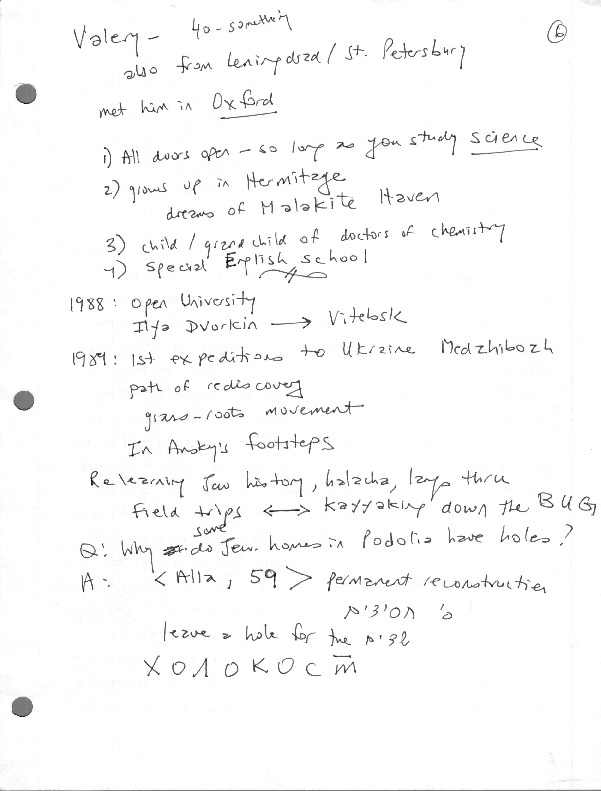 Valery – 40-something
6
also from Leningrad / St. Petersburg
met him in Oxford
1) All doors open – so long as you study science
2) grows up in Hermitage
dreams of Malakite Haven
3) child / grandchild of doctors of chemistry
4) special English school
1988: Open University
Ilya Dvorkin → Vitebsk
1989: 1st expeditions to Ukraine Medzhibozh
path of rediscovery
grass-roots movement
In Ansky's footsteps
Relearning Jew history, halacha, thru
field trips ↔ kayyaking down the BUG
some
Q: Why do Jew. homes in Podolia have holes?
A: < Alla, 59 > permanent reconstruction
leave a hole for the